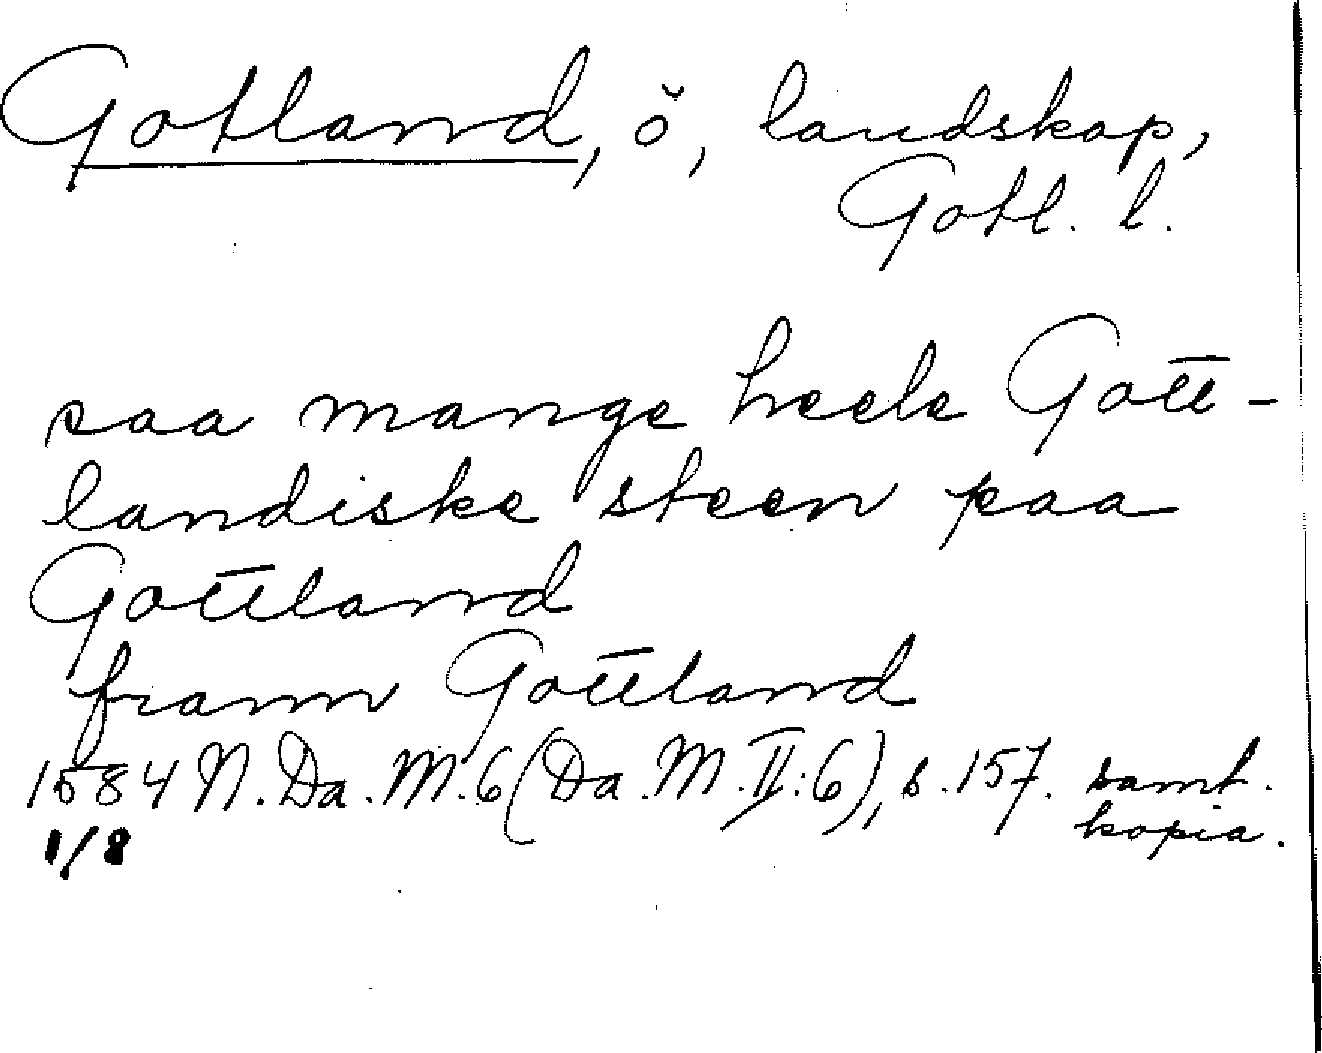 Gotland, ö, landskap,
Gotl. l.
saa mange heele Gott-
landiske steen paa
Gottland
fram Gottland
1584 N. Da. M. 6 (Da. M. II:6), s. 157. samt.
kopia.
1/8